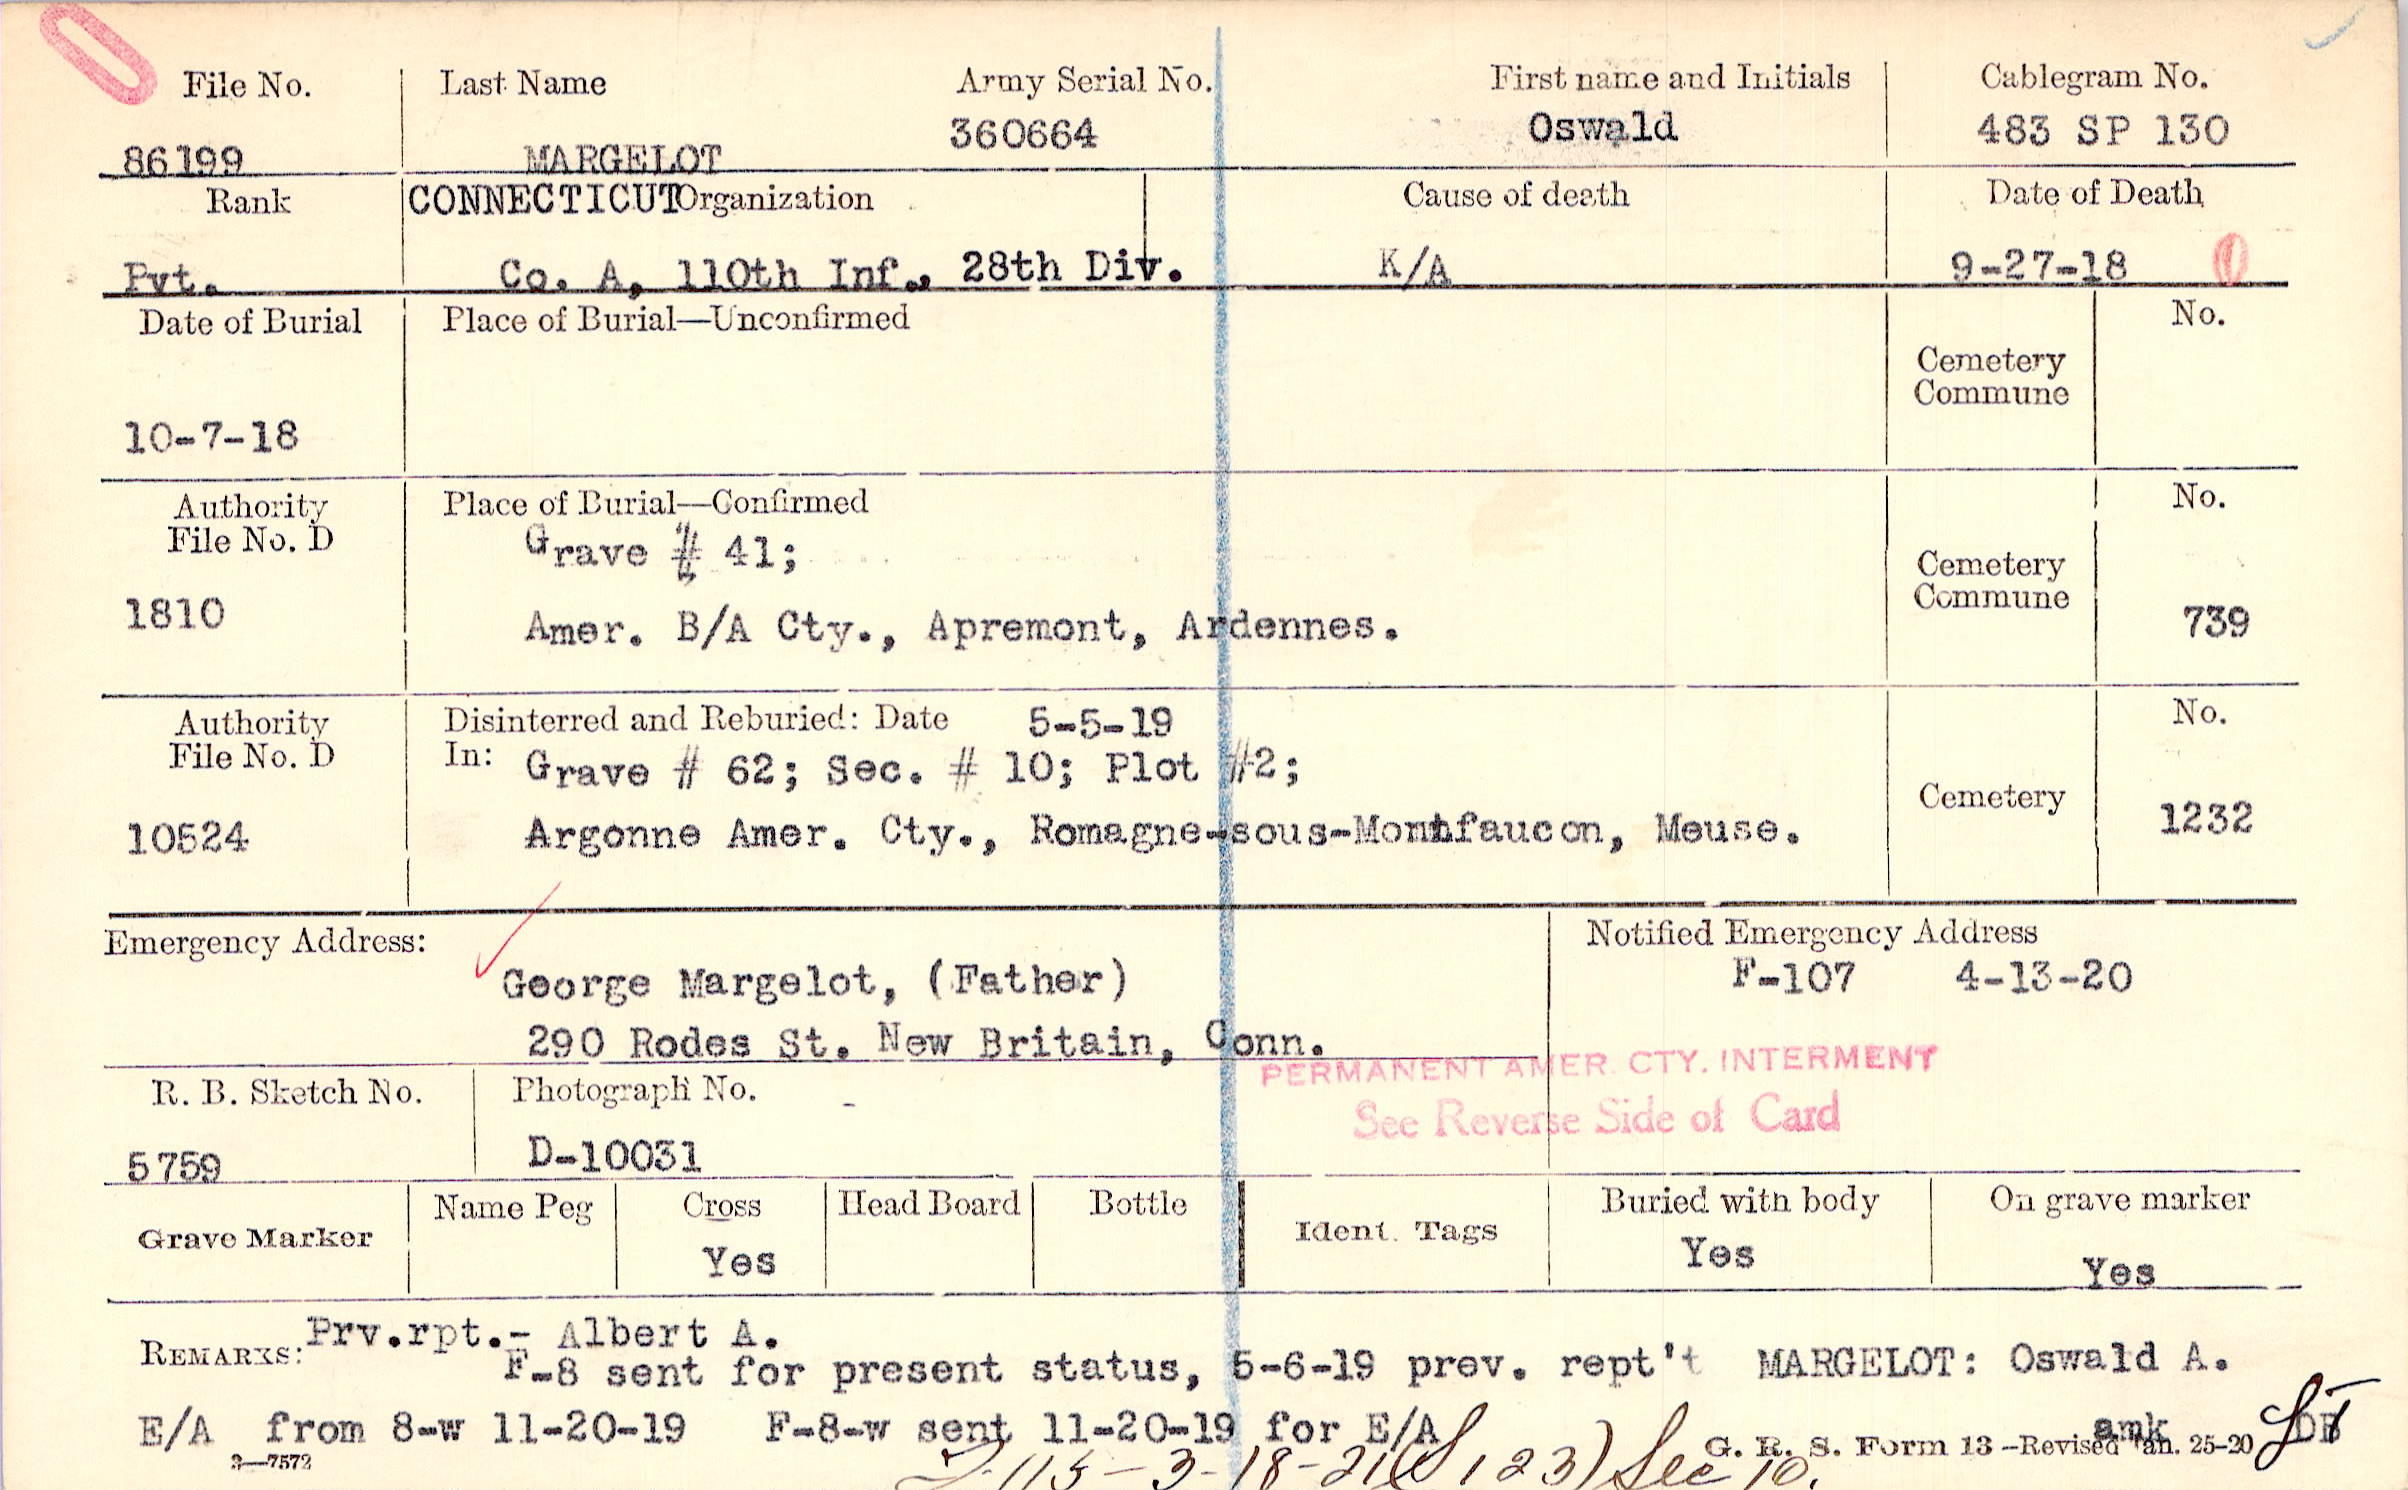 File No. Last Name Army Serial No. First name and Initials Cablegram No.
86199 MARGELOT 360664 Oswald 483 SP 130
Rank CONNECTICUT Organization Cause of death Date of Death
Pvt. Co. A, 110th Inf., 28th Div. K/A 9-27-18
Date of Burial Place of Burial—Unconfirmed No.
Cemetery
Commune
10-7-18
Authority Place of Burial—Confirmed No.
File No. D Grave # 41;
Cemetery
Commune
1810 Amer. B/A Cty., Apremont, Ardennes. 739
Authority Disinterred and Reburied: Date 5-5-19 No.
File No. D In: Grave # 62; Sec. # 10; Plot #2;
Cemetery
10524 Argonne Amer. Cty., Romagne-sous-Montfaucon, Meuse. 1232
Emergency Address: Notified Emergency Address
George Margelot, (Father) F-107 4-13-20
290 Rodes St. New Britain, Conn.
PERMANENT AMER. CTY. INTERMENT
See Reverse Side of Card
R. B. Sketch No. Photograph No.
5759 D-10031
Grave Marker Name Peg Cross Head Board Bottle Ident. Tags Buried with body On grave marker
Yes Yes Yes
REMARKS: Prv.rpt.- Albert A.
F-8 sent for present status, 5-6-19 prev. rept't MARGELOT: Oswald A.
E/A from 8-w 11-20-19 F-8-w sent 11-20-19 for E/A amk
3—7572 G. R. S. Form 13—Revised Jan. 25-20
115-3-18-21 (S123) Sec 10.